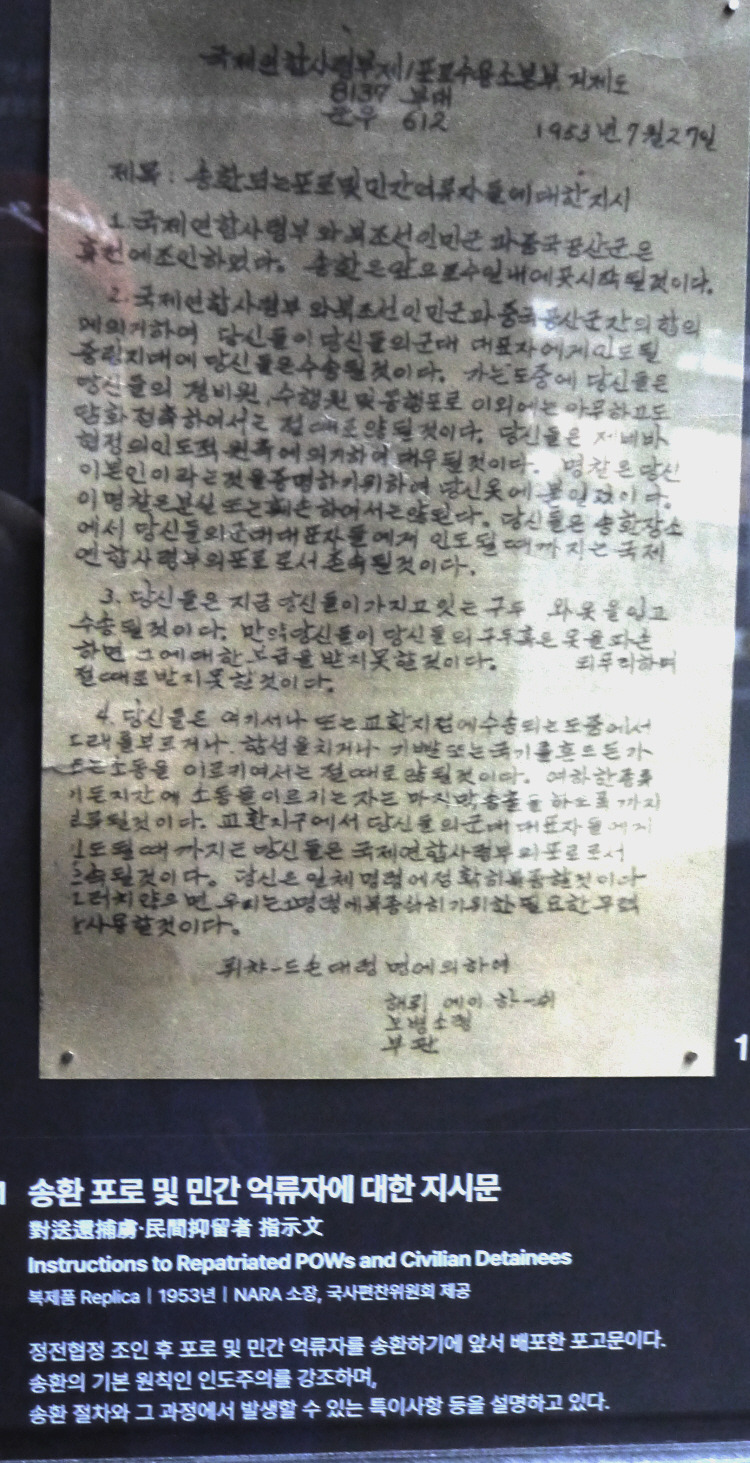 국제연합사령부제1포로수용소본부 거제도
8137 부대
군우 612
1953년 7월 27일
제목: 송환되는포로및민간억류자들에대한지시
1. 국제연합사령부와북조선인민군과중국공산군은
휴전에조인하였다. 송환은앞으로수일내에곳시작될것이다.
2. 국제연합사령부와북조선인민군과중국공산군간의합의
에의거하여 당신들이당신들의군대 대표자에게인도될
중립지대에당신들은수송될것이다. 가는도중에 당신들은
당신들의 경비원,수행원및동행포로 이외에는아무하고도
담화접촉하여서는 절때로않될것이다. 당신들은 제네바
협정의인도적 원측에의거하여 대우될것이다. 명찰은당신
이본인이라는것을증명하기위하여 당신옷에붙일것이다.
이명찰은분실또는훼손하여서는않된다. 당신들은 송환장소
에서 당신들의군대대표자들에게 인도될때까지는국제
연합사령부의포로로서존속될것이다.
3. 당신들은 지금당신들이가지고있는구두 와옷을입고
수송될것이다. 만약당신들이 당신들의구두혹은옷을파손
하면 그에대한보급을받지못할것이다. 되푸리하며
절때로받지못할것이다.
4. 당신들은 여기서나 또는교환지점에수송되는도중에서
노래를부르거나 함성을치거나 기빨또는국기를흔드든가
또는소동을 이르키여서는절때로않될것이다. 여하한종류
이든지간에 소동을이르키는자는 마지막송환을 하도록까지
될것이다. 교환지구에서당신들의군대대표자들에게
인도될때까지는당신들은 국제연합사령부의포로로서
존속될것이다. 당신은 일체명령에정확히복종할것이다
그러치않으면 우리는명령에복종하기위한필요한무력
을사용할것이다.
뤼챠-드손대령 명에의하여
해뤼 에이 하-쉬
보병소령
부관
1
1 송환 포로 및 민간 억류자에 대한 지시문
對送還捕虜·民間抑留者 指示文
Instructions to Repatriated POWs and Civilian Detainees
복제품 Replica | 1953년 | NARA 소장, 국사편찬위원회 제공
정전협정 조인 후 포로 및 민간 억류자를 송환하기에 앞서 배포한 포고문이다.
송환의 기본 원칙인 인도주의를 강조하며,
송환 절차와 그 과정에서 발생할 수 있는 특이사항 등을 설명하고 있다.